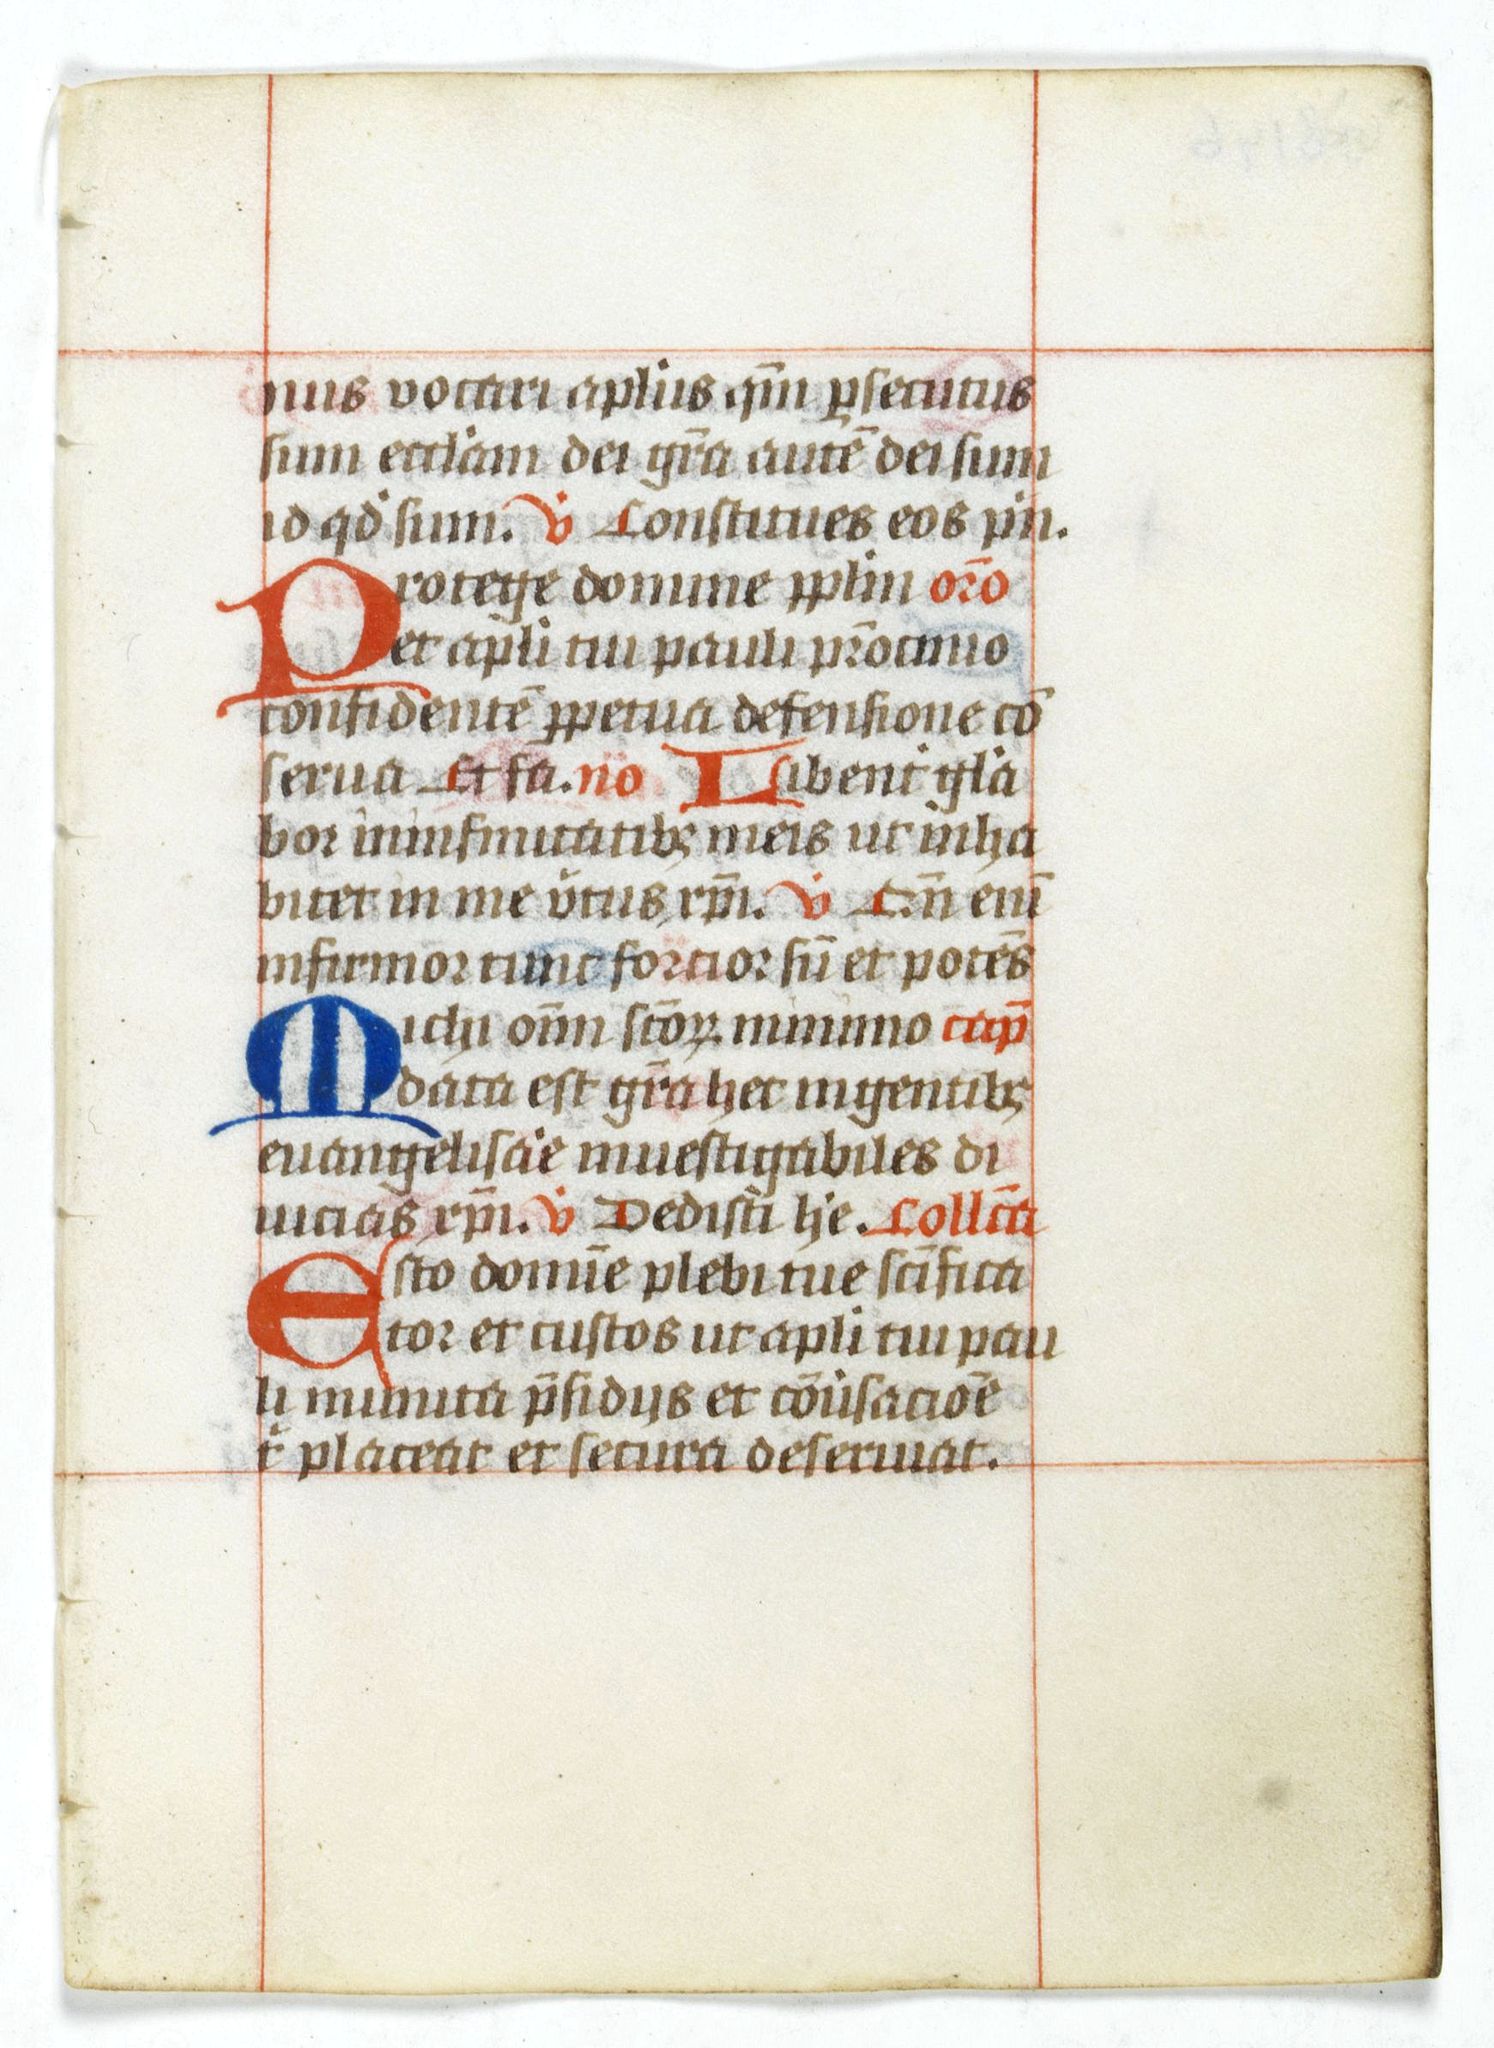 nus vocari aplius qm̄ ꝑsecutus
sum eccliam dei gr̄a autē dei sum
id qd' sum. v̇ Constitues eos pn̄.
Protege domine pplm or̄o
et apl̄i tui pauli pr̄ocinio
confidentē ꝑpetua defensione cō
serua Et fa. no Libent' gl'ia
bor in infirmitatibꝫ meis ut inha
bitet in me v̄tus xp̄i. v̇ Cū eni
infirmor tunc fortior sū et potēs
Michi om̄n scōꝝ minimo cap̄
data est gr̄a hec in gentibꝫ
euangelisa'e inuestigabiles di
uicias xp̄i. v̇ Dedisti h'e. Collc̄ta
Esto domīe plebi tue sc̄ifica
tor et custos ut apli tui pau
li munita p̄sidijs et cōu'sacioē
t' placeat et secura deseruiat.